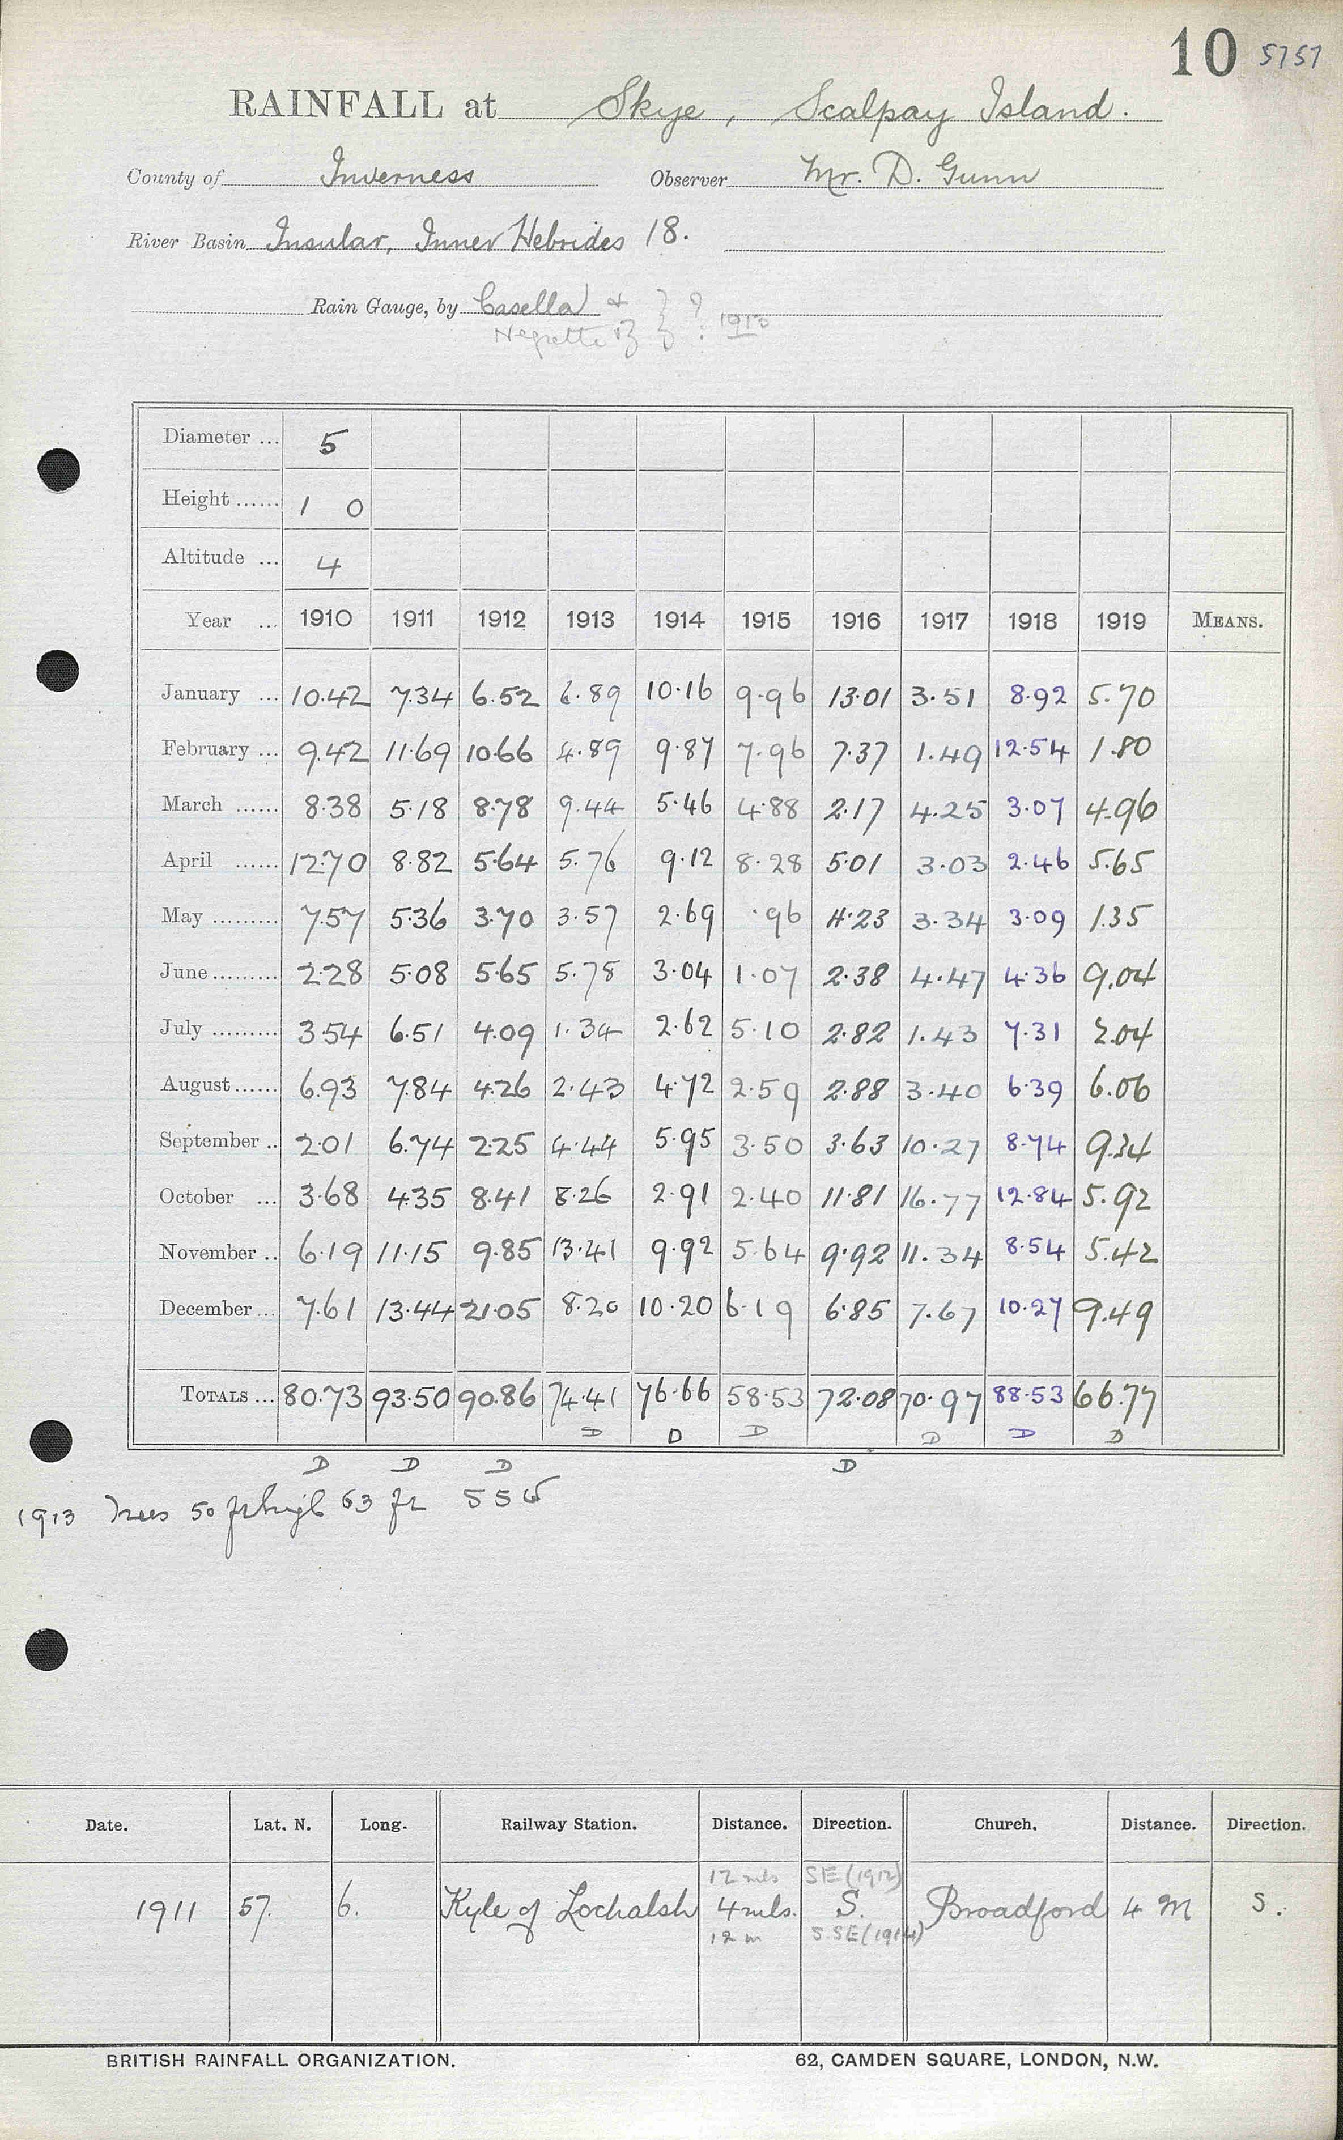 10 5757
RAINFALL at Skye, Scalpay Island.
County of Inverness Observer Mr. D. Gunn
River Basin Insular, Inner Hebrides 18.
Rain Gauge, by Casella & } ?
Negretti & Z } 1910
Diameter ... 5
Height ...... 1 0
Altitude ... 4
Year ... 1910 1911 1912 1913 1914 1915 1916 1917 1918 1919 MEANS.
January ... 10.42 7.34 6.52 6.89 10.16 9.96 13.01 3.51 8.92 5.70
February ... 9.42 11.69 10.66 4.89 9.87 7.96 7.37 1.49 12.54 1.80
March ...... 8.38 5.18 8.78 9.44 5.46 4.88 2.17 4.25 3.07 4.96
April ...... 12.70 8.82 5.64 5.76 9.12 8.28 5.01 3.03 2.46 5.65
May ......... 7.57 5.36 3.70 3.57 2.69 .96 4.23 3.34 3.09 1.35
June ......... 2.28 5.08 5.65 5.78 3.04 1.07 2.38 4.47 4.36 9.04
July ......... 3.54 6.51 4.09 1.34 2.62 5.10 2.82 1.43 7.31 2.04
August ...... 6.93 7.84 4.26 2.43 4.72 2.59 2.88 3.40 6.39 6.06
September .. 2.01 6.74 2.25 4.44 5.95 3.50 3.63 10.27 8.74 9.34
October ... 3.68 4.35 8.41 8.26 2.91 2.40 11.81 16.77 12.84 5.92
November .. 6.19 11.15 9.85 13.41 9.92 5.64 9.92 11.34 8.54 5.42
December ... 7.61 13.44 21.05 8.20 10.20 6.19 6.85 7.67 10.27 9.49
TOTALS ... 80.73 93.50 90.86 74.41 76.66 58.53 72.08 70.97 88.53 66.77
D D D D D D
D D D D
1913 Trees 50 ft high 63 ft SSW
Date. Lat. N. Long. Railway Station. Distance. Direction. Church. Distance. Direction.
12 mls SE (1912)
1911 57. 6. Kyle of Lochalsh 4 mls. S. Broadford 4 M S.
12 m S.SE (1914)
BRITISH RAINFALL ORGANIZATION. 62, CAMDEN SQUARE, LONDON, N.W.